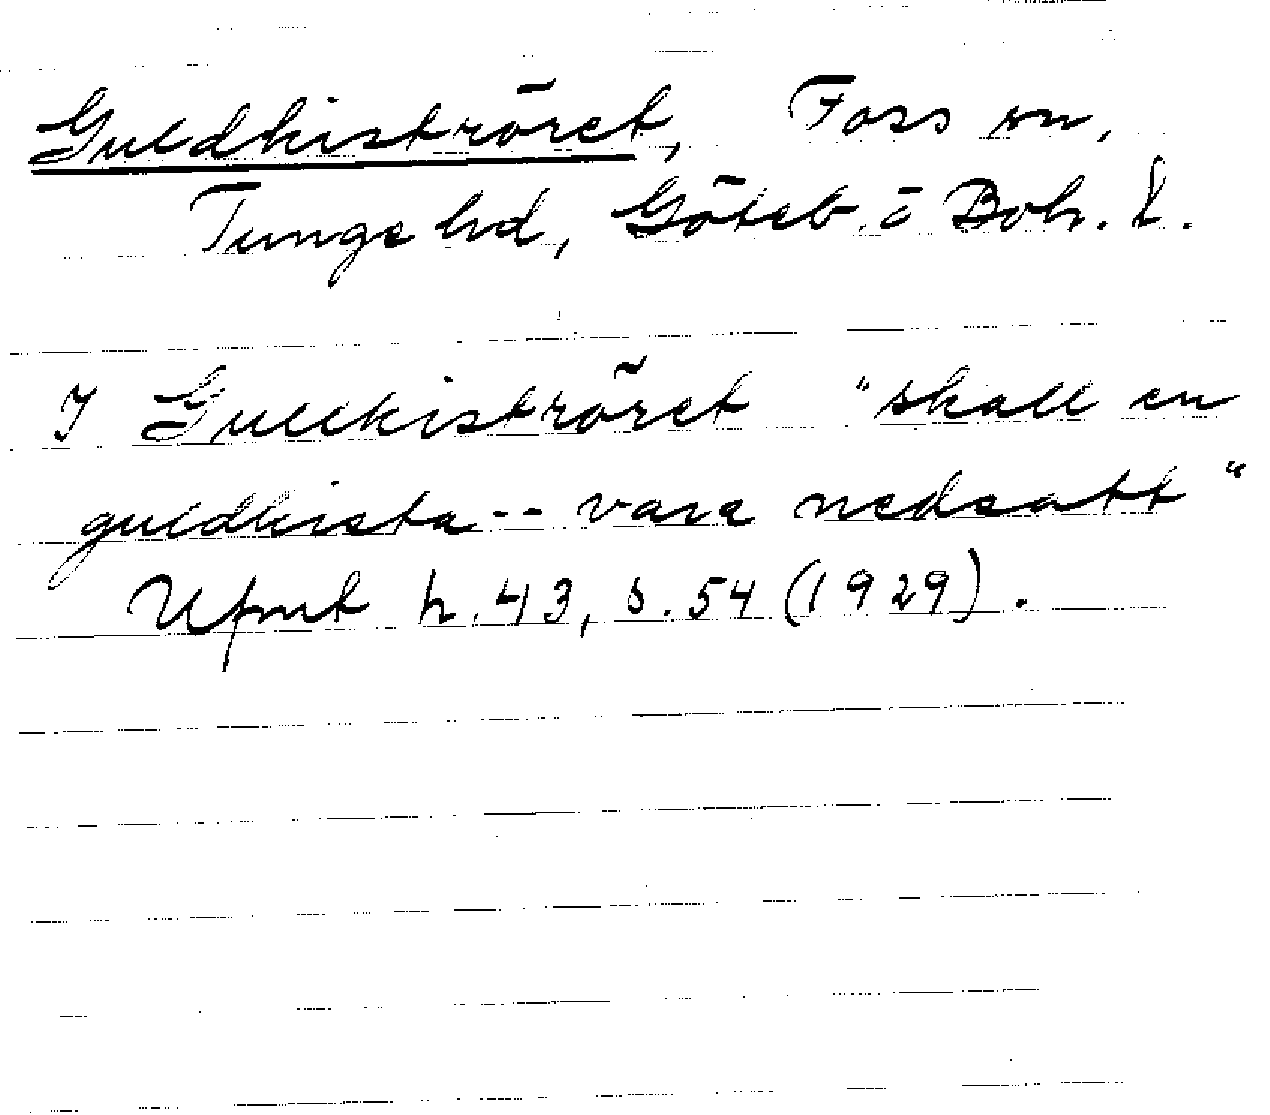 Guldkiströret, Foss sn,
Tunge hd, Göteb. o Boh. l.
I Gullkiströret "skall en
guldkista -- vara nedsatt"
Ufmt h. 43, s. 54 (1929).